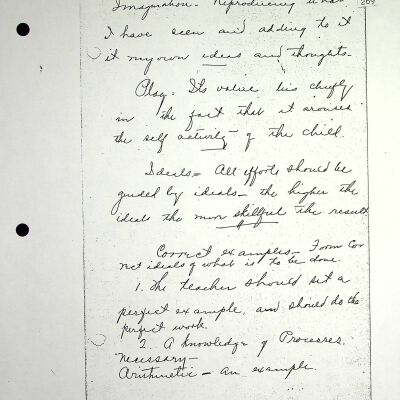 269
Imagination - Reproducing what
I have seen and adding to it
it my own ideas and thoughts.
Play - Its value lies chiefly
in the fact that it arouses
the self activity of the child.
Ideals - All efforts should be
guided by ideals - the higher the
ideals the more skillful the result
Correct examples - Form Cor
rect ideals of what is to be done.
1. The teacher should set a
perfect example, and should do the
perfect work.
2. A knowledge of Processes.
necessary -
Arithmetic - an example.